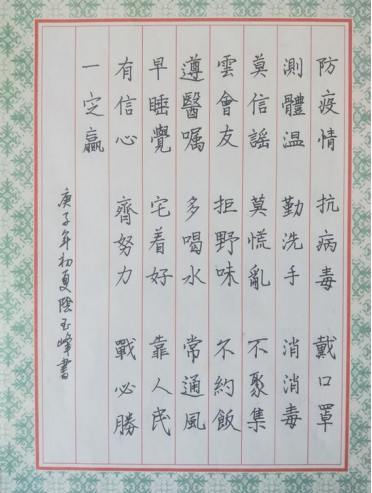 防疫情 抗病毒 戴口罩
測體温 勤洗手 消消毒
莫信謡 莫慌亂 不聚集
雲會友 拒野味 不約飯
遵醫嘱 多喝水 常通風
早睡覺 宅着好 靠人民
有信心 齊努力 戰必勝
一定贏
庚子年初夏陰玉峰書